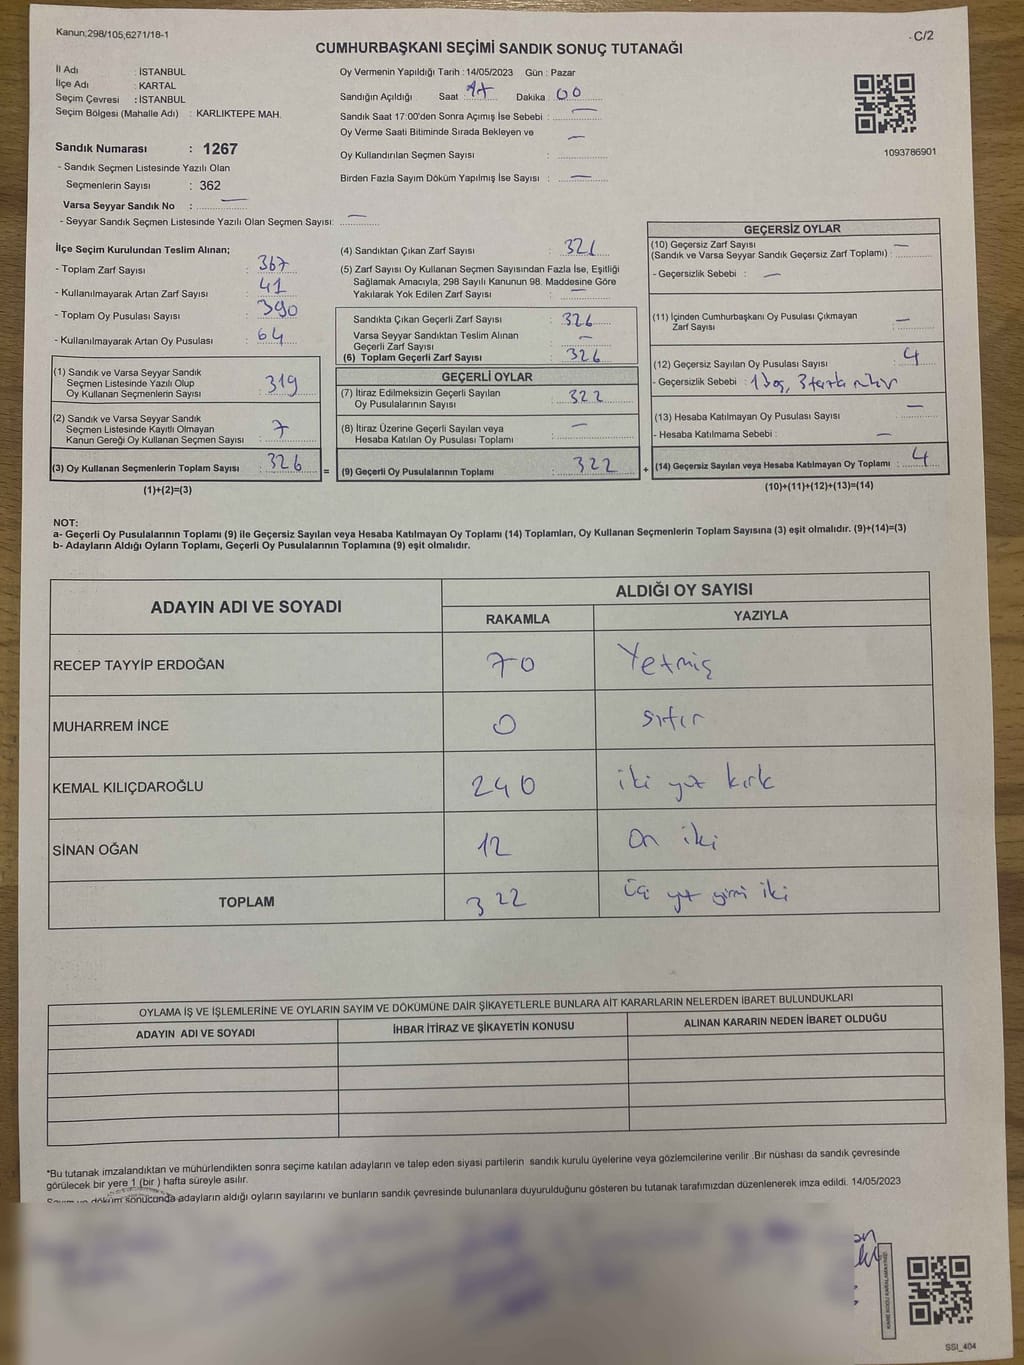 Kanun;298/105,6271/18-1
C/2
CUMHURBAŞKANI SEÇİMİ SANDIK SONUÇ TUTANAĞI
İl Adı : İSTANBUL
İlçe Adı : KARTAL
Seçim Çevresi : İSTANBUL
Seçim Bölgesi (Mahalle Adı) : KARLIKTEPE MAH.
Sandık Numarası : 1267
- Sandık Seçmen Listesinde Yazılı Olan
Seçmenlerin Sayısı : 362
Varsa Seyyar Sandık No : —
- Seyyar Sandık Seçmen Listesinde Yazılı Olan Seçmen Sayısı: —
Oy Vermenin Yapıldığı Tarih :14/05/2023 Gün : Pazar
Sandığın Açıldığı Saat 17 Dakika : 00
Sandık Saat 17:00'den Sonra Açımış İse Sebebi : —
Oy Verme Saati Bitiminde Sırada Bekleyen ve —
Oy Kullandırılan Seçmen Sayısı :
Birden Fazla Sayım Döküm Yapılmış İse Sayısı : —
1093786901
İlçe Seçim Kurulundan Teslim Alınan;
- Toplam Zarf Sayısı : 367
- Kullanılmayarak Artan Zarf Sayısı : 41
- Toplam Oy Pusulası Sayısı : 390
- Kullanılmayarak Artan Oy Pusulası : 64
(1) Sandık ve Varsa Seyyar Sandık
Seçmen Listesinde Yazılı Olup
Oy Kullanan Seçmenlerin Sayısı : 319
(2) Sandık ve Varsa Seyyar Sandık
Seçmen Listesinde Kayıtlı Olmayan
Kanun Gereği Oy Kullanan Seçmen Sayısı : 7
(3) Oy Kullanan Seçmenlerin Toplam Sayısı : 326 =
(1)+(2)=(3)
(4) Sandıktan Çıkan Zarf Sayısı : 326
(5) Zarf Sayısı Oy Kullanan Seçmen Sayısından Fazla İse, Eşitliği
Sağlamak Amacıyla; 298 Sayılı Kanunun 98. Maddesine Göre
Yakılarak Yok Edilen Zarf Sayısı : —
Sandıkta Çıkan Geçerli Zarf Sayısı : 326
Varsa Seyyar Sandıktan Teslim Alınan
Geçerli Zarf Sayısı : —
(6) Toplam Geçerli Zarf Sayısı : 326
GEÇERLİ OYLAR
(7) İtiraz Edilmeksizin Geçerli Sayılan
Oy Pusulalarının Sayısı : 322
(8) İtiraz Üzerine Geçerli Sayılan veya
Hesaba Katılan Oy Pusulası Toplamı : —
(9) Geçerli Oy Pusulalarının Toplamı : 322 +
GEÇERSİZ OYLAR
(10) Geçersiz Zarf Sayısı —
(Sandık ve Varsa Seyyar Sandık Geçersiz Zarf Toplamı) :
- Geçersizlik Sebebi : —
(11) İçinden Cumhurbaşkanı Oy Pusulası Çıkmayan
Zarf Sayısı : —
(12) Geçersiz Sayılan Oy Pusulası Sayısı : 4
- Geçersizlik Sebebi : 1 boş, 3 fazla mühür
(13) Hesaba Katılmayan Oy Pusulası Sayısı : —
- Hesaba Katılmama Sebebi : —
(14) Geçersiz Sayılan veya Hesaba Katılmayan Oy Toplamı : 4
(10)+(11)+(12)+(13)=(14)
NOT:
a- Geçerli Oy Pusulalarının Toplamı (9) ile Geçersiz Sayılan veya Hesaba Katılmayan Oy Toplamı (14) Toplamları, Oy Kullanan Seçmenlerin Toplam Sayısına (3) eşit olmalıdır. (9)+(14)=(3)
b- Adayların Aldığı Oyların Toplamı, Geçerli Oy Pusulalarının Toplamına (9) eşit olmalıdır.
ADAYIN ADI VE SOYADI
ALDIĞI OY SAYISI
RAKAMLA YAZIYLA
RECEP TAYYİP ERDOĞAN 70 Yetmiş
MUHARREM İNCE 0 sıfır
KEMAL KILIÇDAROĞLU 240 iki yüz kırk
SİNAN OĞAN 12 On iki
TOPLAM 322 Üç yüz yirmi iki
OYLAMA İŞ VE İŞLEMLERİNE VE OYLARIN SAYIM VE DÖKÜMÜNE DAİR ŞİKAYETLERLE BUNLARA AİT KARARLARIN NELERDEN İBARET BULUNDUKLARI
ADAYIN ADI VE SOYADI İHBAR İTİRAZ VE ŞİKAYETİN KONUSU ALINAN KARARIN NEDEN İBARET OLDUĞU
*Bu tutanak imzalandıktan ve mühürlendikten sonra seçime katılan adayların ve talep eden siyasi partilerin sandık kurulu üyelerine veya gözlemcilerine verilir .Bir nüshası da sandık çevresinde
görülecek bir yere 1 (bir ) hafta süreyle asılır.
Sayım ve döküm sonucunda adayların aldığı oyların sayılarını ve bunların sandık çevresinde bulunanlara duyurulduğunu gösteren bu tutanak tarafımızdan düzenlenerek imza edildi. 14/05/2023
SSI_404